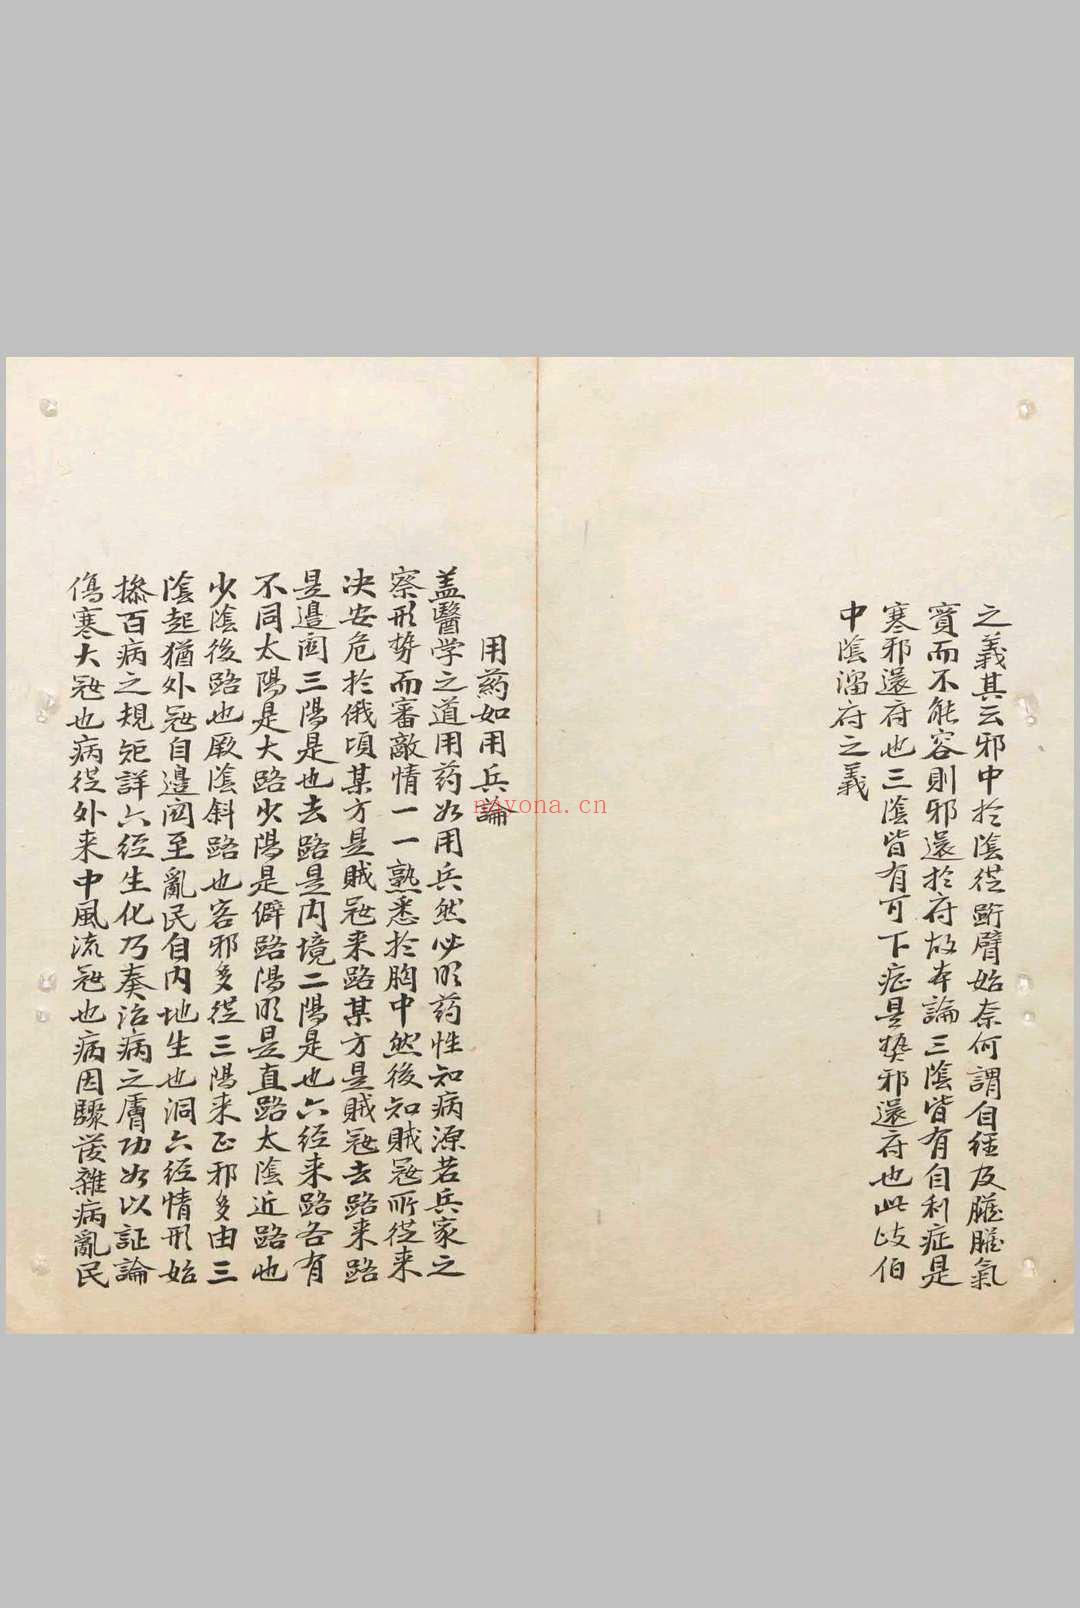 之義其云邪中於陰從䯒臂始奈何謂自經及臟臟氣
實而不能容則邪還於府故本論三陰皆有自利症是
寒邪還府也三陰皆有可下症是熱邪還府也此歧伯
中陰溜府之義
用药如用兵論
盖醫学之道用药如用兵然必明药性知病源若兵家之
察形势而審敵情一一熟悉於胸中然後知賊冦所從来
决安危於俄頃某方是賊冦来路某方是賊冦去路来路
是邉関三陽是也去路是内境二陽是也六经来路各有
不同太陽是大路少陽是僻路陽明是直路太陰近路也
少陰後路也厥陰斜路也客邪多從三陽来正邪多由三
陰起猶外冦自邉関至亂民自内地生也洞六经情形始
摻百病之規矩詳六经生化乃奏治病之膚功如以証論
傷寒大冦也病從外来中風流冦也病因驟發雜病亂民
nayona.cn